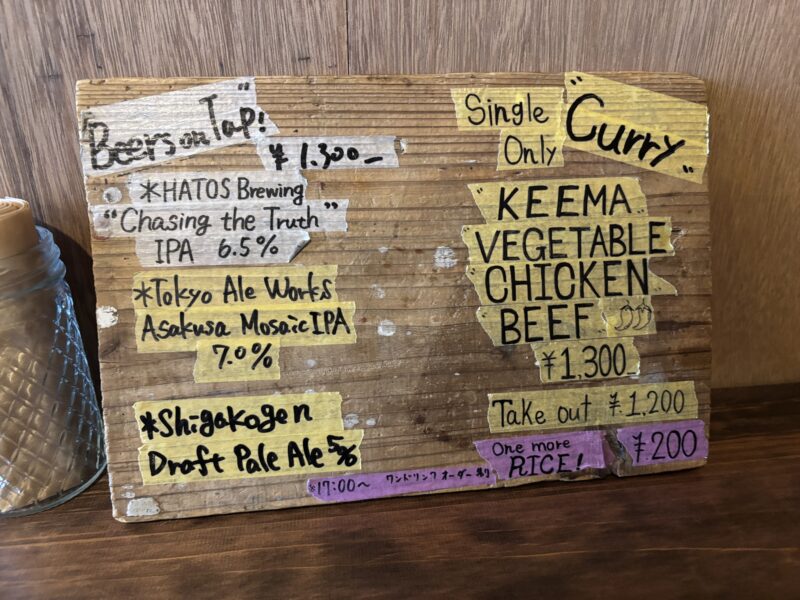 "Beers on Tap!"
¥1.300_
*HATOS Brewing
"Chasing the Truth"
IPA 6.5%
*Tokyo Ale Works
Asakusa Mosaic IPA
7.0%
*Shigakogen
Draft Pale Ale 5%
Single
Only
"Curry"
"KEEMA
VEGETABLE
CHICKEN
BEEF
¥1,300_
Take out ¥1,200
One more
RICE!
¥200
*17:00〜 ワンドリンクオーダー制